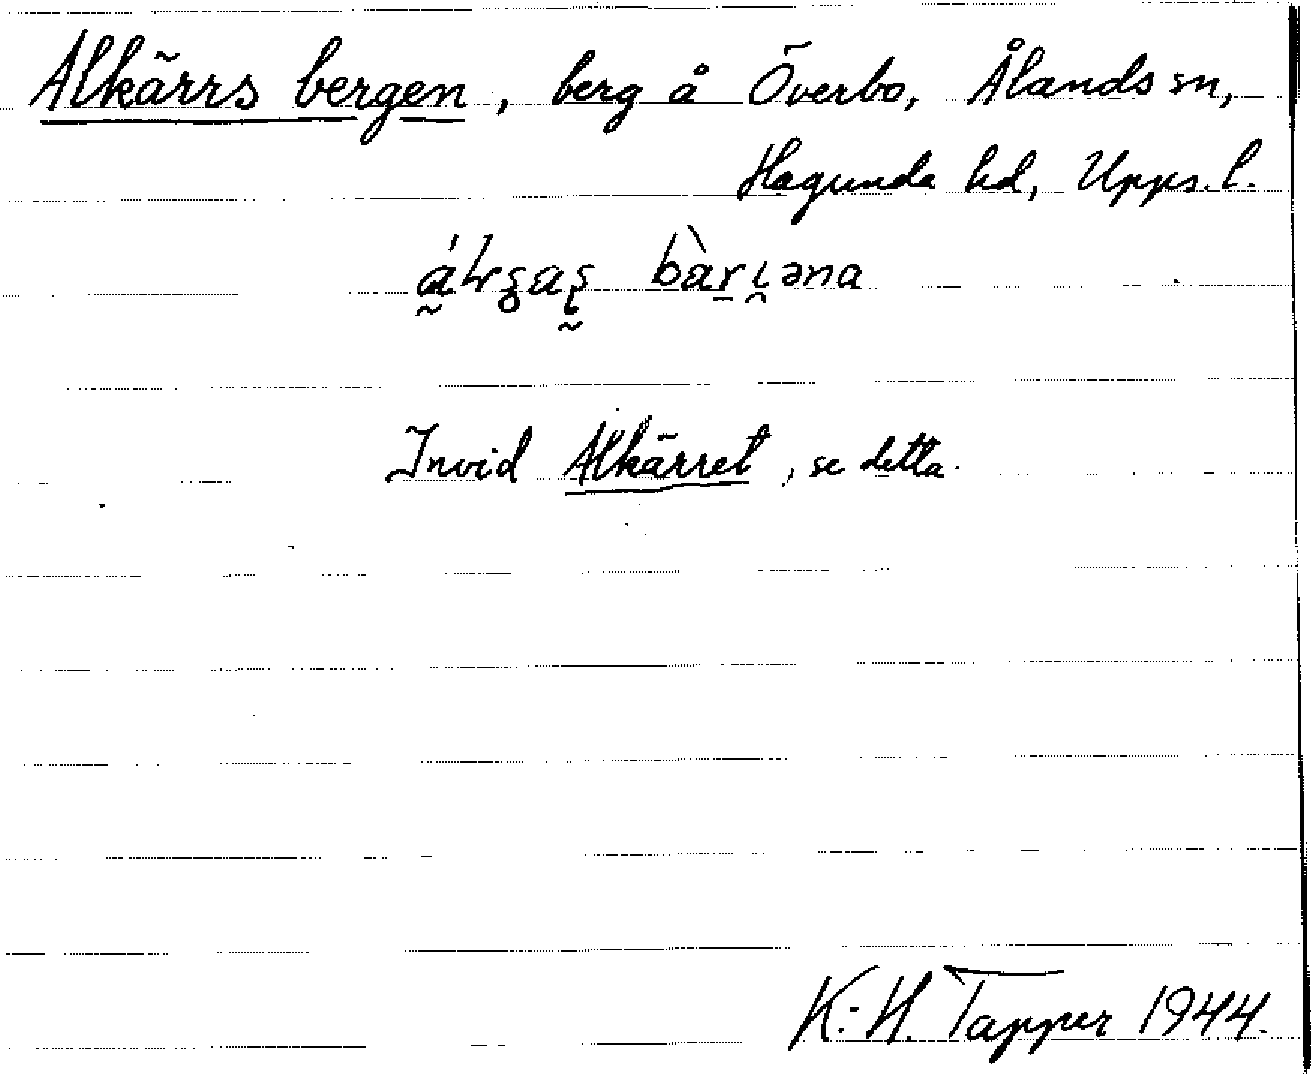 Alkärrs bergen, berg å Överbo, Ålands sn,
Hagunda hd, Upps. l.
Invid Alkärret, se detta.
K.-H. Tapper 1944.